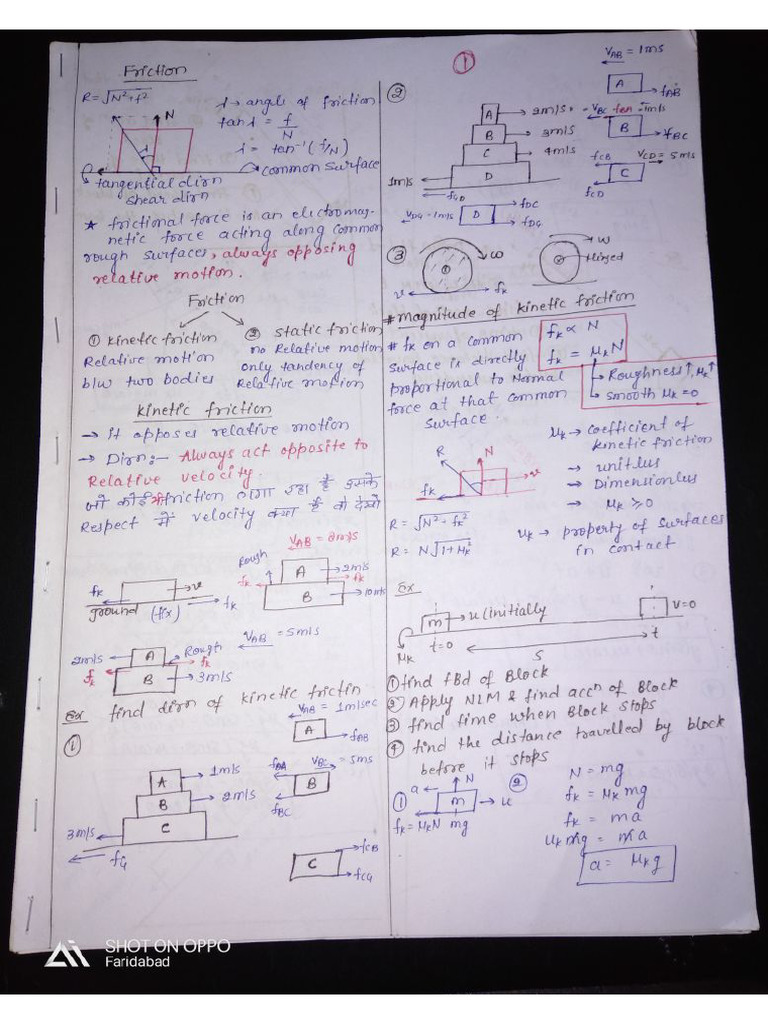 Friction
R = √N²+f²
N
λ → angle of friction
tan λ = f/N
λ = tan⁻¹(f/N)
common surface
tangential dirn
shear dirn
★ frictional force is an electromag-
netic force acting along common
rough surfaces, always opposing
relative motion.
Friction
① Kinetic friction
Relative motion
b/w two bodies
② Static friction
no Relative motion
only tendency of
Relative motion
Kinetic friction
→ it opposes relative motion
→ Dirn:- Always act opposite to
Relative velocity.
Respect में velocity क्या है वो देखो
VAB = 8m/s
Rough
A
2m/s
fk
fk
B
10m/s
fk
v
ground (fix)
fk
VAB = 5m/s
2m/s
A
Rough
fk
fk
B
3m/s
Ex find dirn of kinetic frictin
①
VAB = 1m/sec
A
fAB
A
1m/s
B
2m/s
C
3m/s
fG
fBA
= 5ms
B
fBC
C
fCB
fCG
①
②
VAB = 1ms
A
fAB
A
B
3m/s
C
4m/s
D
1m/s
VBC
B
fBC
fCB
VCD = 5m/s
C
fCD
VDG = 1m/s
D
fDC
fDG
③
ω
v
fk
ω
Hinged
# Magnitude of kinetic friction
# fk on a common
surface is directly
proportional to Normal
force at that common
surface.
fk ∝ N
fk = μkN
→ Roughness↑, μk↑
→ smooth μk = 0
R
N
v
fk
R = √N² + fk²
R = N√1+μk²
μk → coefficient of
kinetic friction
→ unitlus
→ Dimensionlus
→ μk ≥ 0
μk → property of surfaces
in contact
Ex
m
u (initially
v=0
t=0
t
μk
S
① find fBd of Block
② Apply NLM & find accn of Block
③ find time when Block stops
④ find the distance travelled by block
before it stops
①
a
N
m
u
fk = μkN
mg
②
N = mg
fk = μk mg
fk = ma
μk mg = ma
a = μk g
SHOT ON OPPO
Faridabad